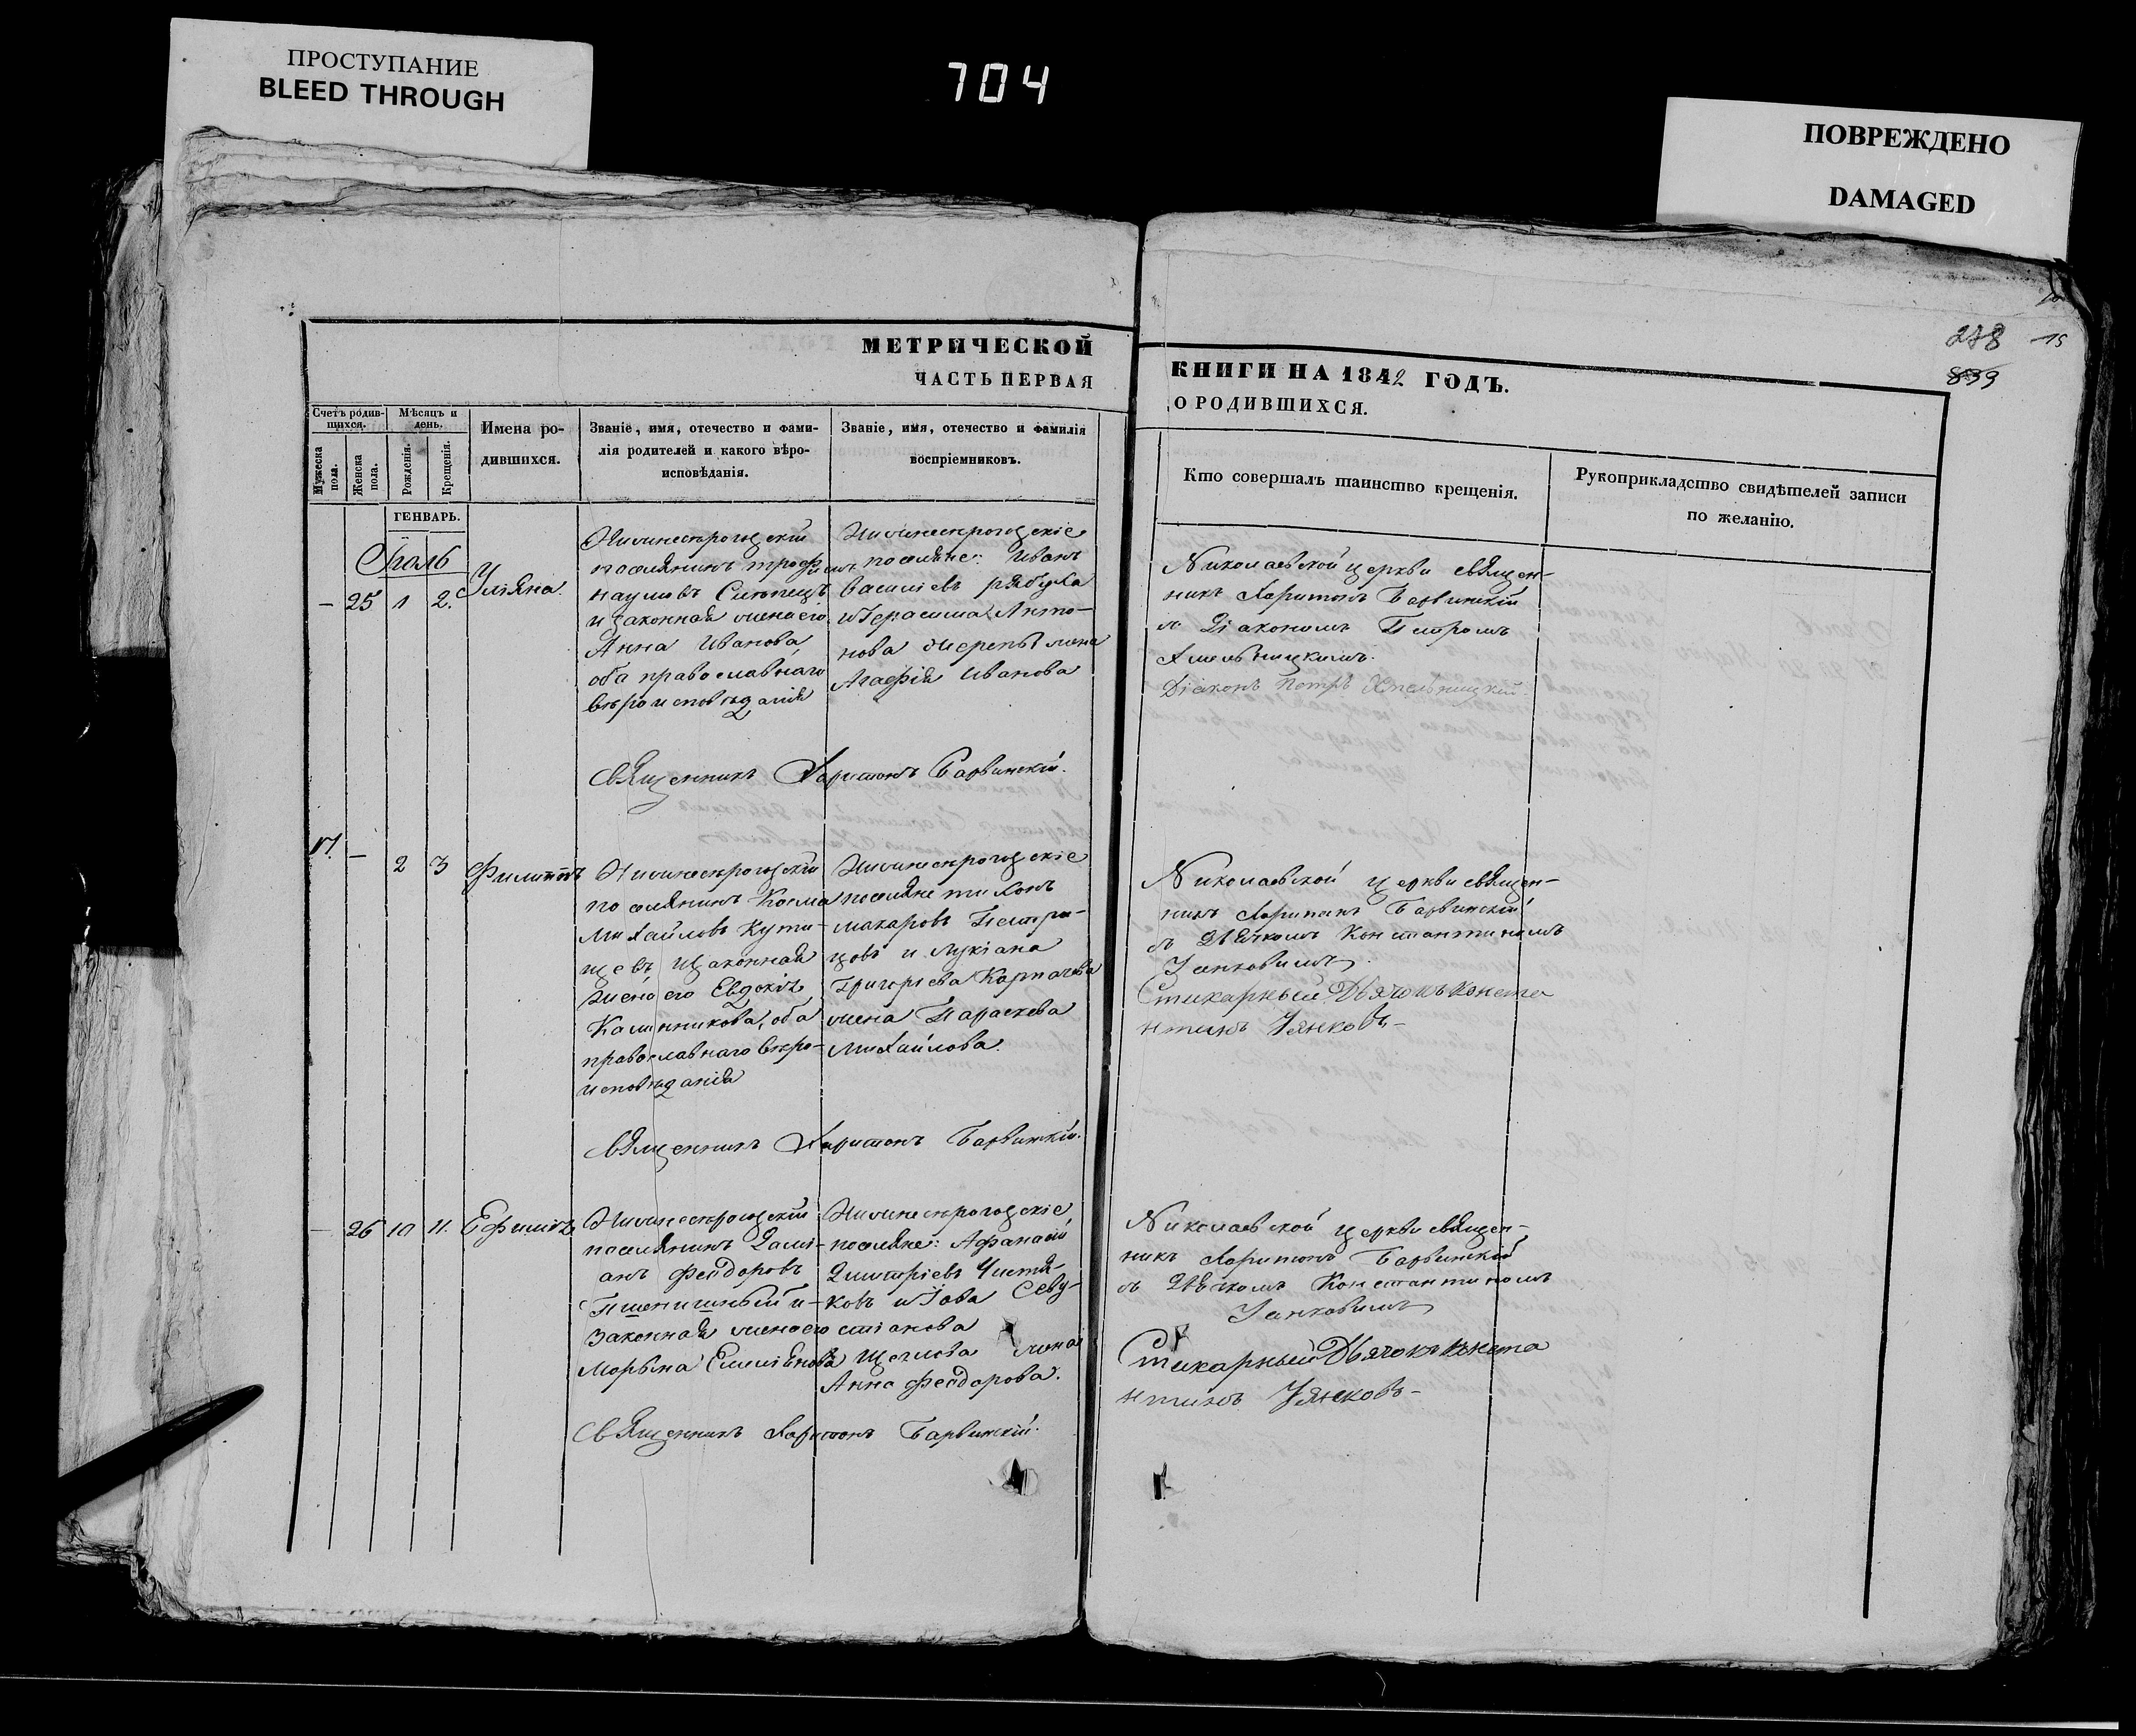 ПРОСТУПАНИЕ
BLEED THROUGH
704
ПОВРЕЖДЕНО
DAMAGED
278
15
839
МЕТРИЧЕСКОЙ
ЧАСТЬ ПЕРВАЯ
КНИГИ НА 1842 ГОДЪ.
О РОДИВШИХСЯ.
Счетъ родив-
шихся.
Мѣсяцъ и
день.
Мужеска
пола.
Женска
пола.
Рожденія.
Крещенія.
Имена ро-
дившихся.
Званіе, имя, отечество и фами-
лія родителей и какого вѣро-
исповѣданія.
Званіе, имя, отечество и фамилія
воспріемниковъ.
Кто совершалъ таинство крещенія.
Рукоприкладство свидѣтелей записи
по желанію.
ГЕНВАРЬ.
– 25 1 2.
Уліяна.
Нижнесѣрогозскій
поселянинъ Трофимъ
Наумовъ Слѣпецъ
и законная жена его
Анна Иванова
оба православнаго
вѣроисповѣданія
Нижнесѣрогозскіе
поселяне: Иванъ
Васильевъ Рябуха
и Герасима Анто-
нова жена
Агафія Иванова
Николаевской церкви священ-
никъ Харитонъ Барвинскій
съ Діакономъ Петромъ
Хмельницкимъ.
Діаконъ Петръ Хмельницкій.
Священникъ Харитонъ Барвинскій.
17. – 2 3
Филиппъ
Нижнесѣрогозскій
поселянинъ Косма
Михайловъ Кути-
щевъ и законная
жена его Евдокія
Калинникова, оба
православнаго вѣро-
исповѣданія
Нижнесѣрогозскіе
поселяне Тихонъ
Макаровъ
и Лукіана
Григоріева Карпачева
жена Параскева
Михайлова.
Николаевской церкви священ-
никъ Харитонъ Барвинскій
съ Дьячкомъ Константиномъ
Стихарный Дьячокъ Конста
нтинъ
Священникъ Харитонъ Барвинскій.
– 26 10 11.
Ефимія
Нижнесѣрогозскій
поселянинъ Дамі-
анъ Феодоровъ
Пшенишный и
законная жена его
Марѳна Емеліянова
Нижнесѣрогозскіе
поселяне: Афанасій
Димитріевъ Чистя-
ковъ и Іова Севу-
стіанова
Щеглова жена
Анна Феодорова.
Николаевской церкви священ-
никъ Харитонъ Барвинскій
съ Дьячкомъ Константиномъ
Стихарный Дьячокъ Конста
нтинъ
Священникъ Харитонъ Барвинскій.